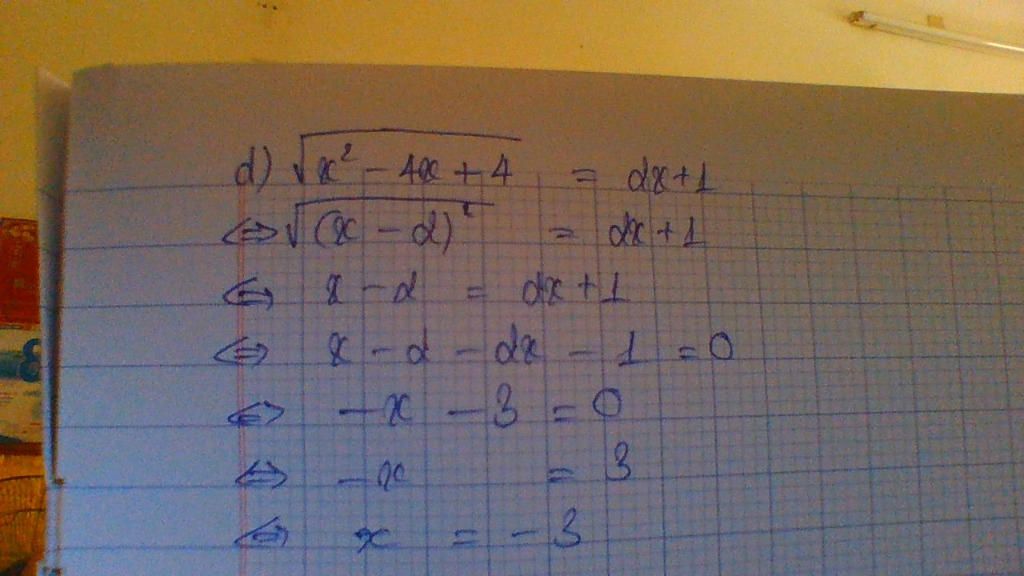 d) √(x² - 4x + 4) = 2x+1
⇔ √(x - 2)² = 2x+1
⇔ x - 2 = 2x + 1
⇔ x - 2 - 2x - 1 = 0
⇔ -x - 3 = 0
⇔ -x = 3
⇔ x = -3
8